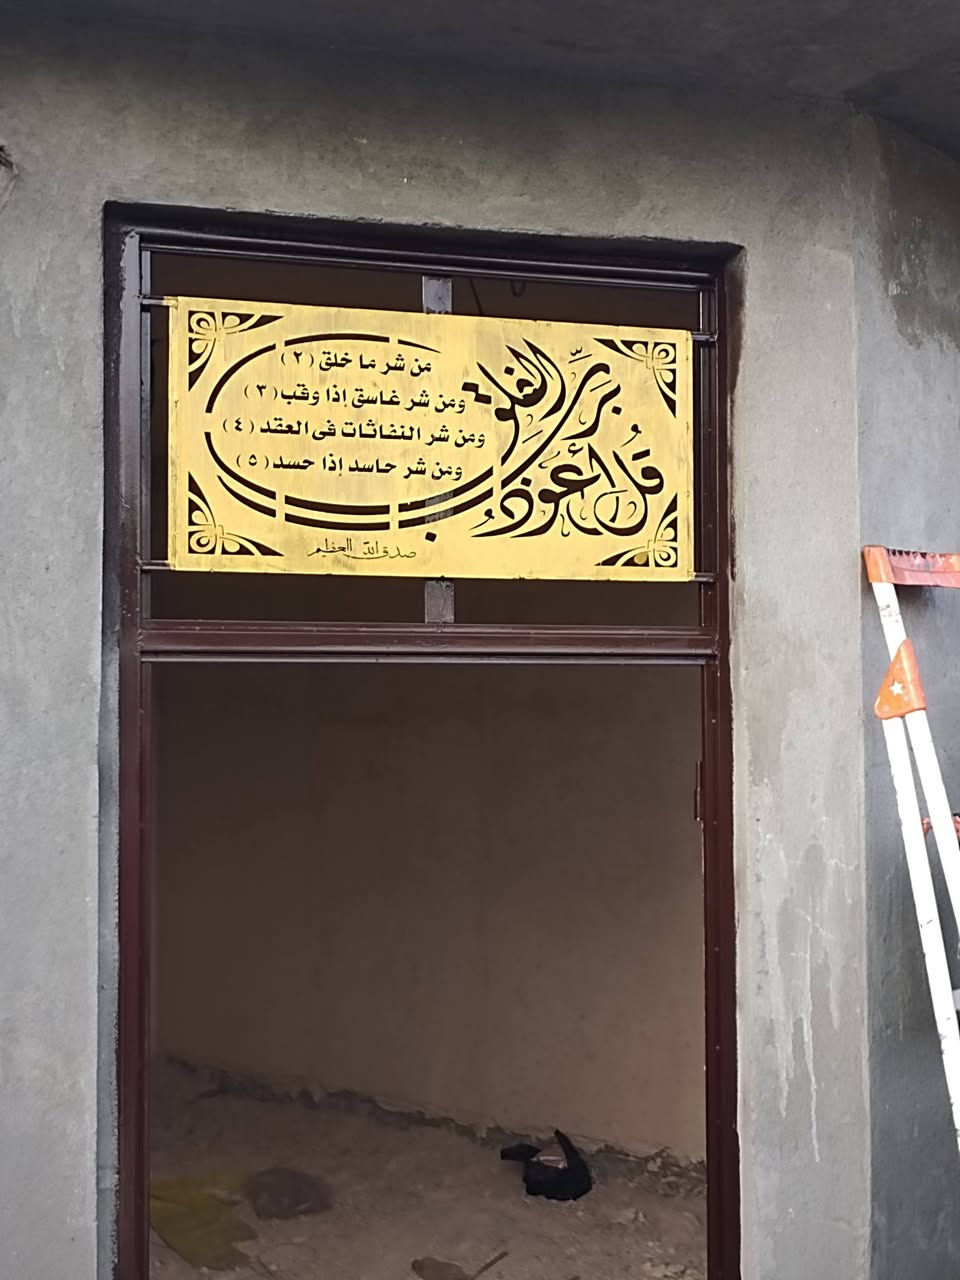 قُل أعوذُ بِرَبِّ الفلق
من شر ما خلق (٢)
ومن شر غاسق إذا وقب (٣)
ومن شر النفاثات فى العقد (٤)
ومن شر حاسد إذا حسد (٥)
صدق الله العظيم